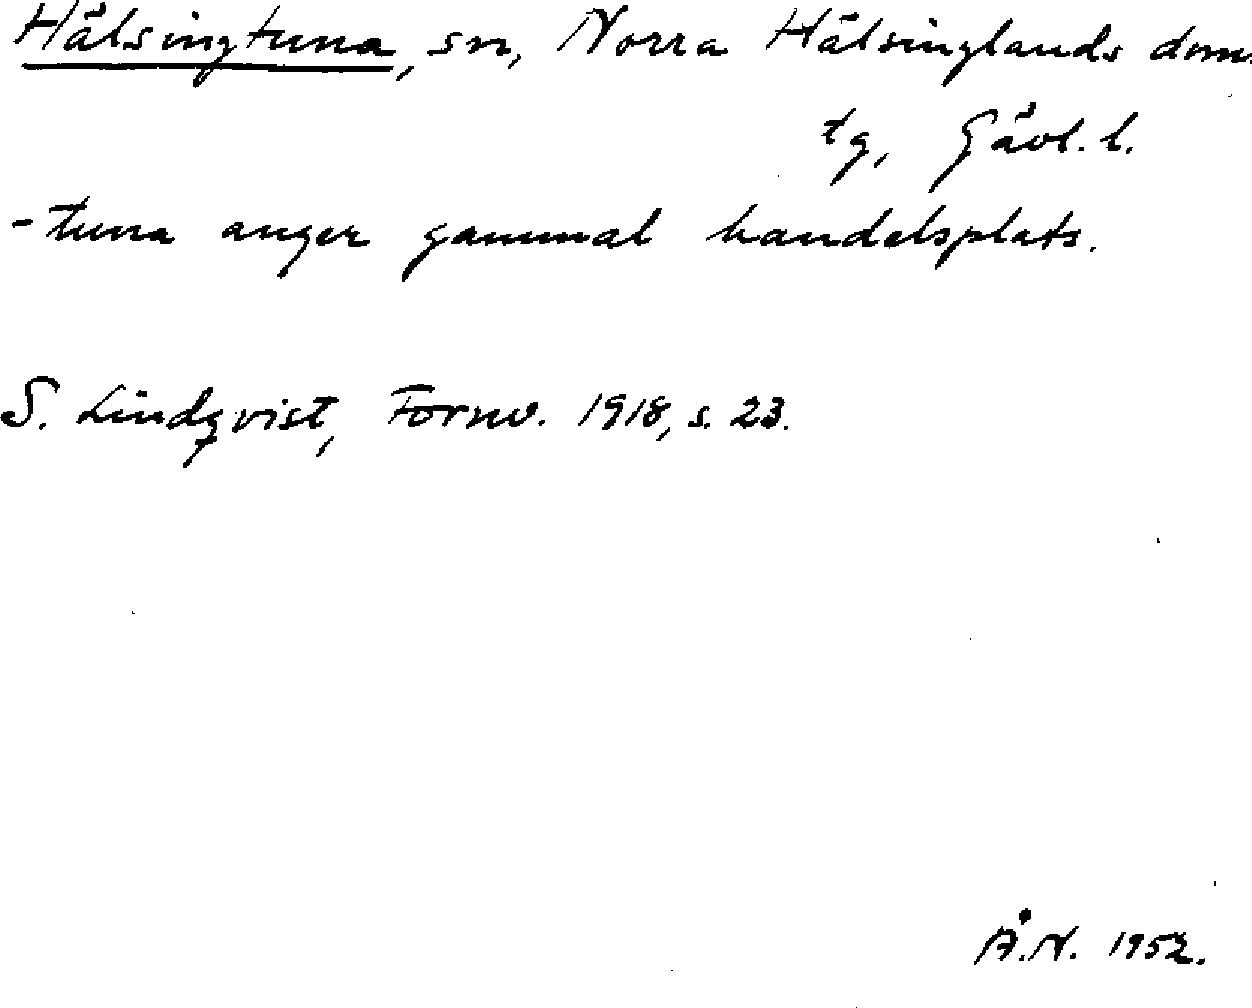 Hälsingtuna, sn, Norra Hälsinglands dom.
tg, Gävl. l.
-tuna anger gammal handelsplats.
S. Lindqvist, Fornv. 1918, s. 23.
Å.N. 1952.